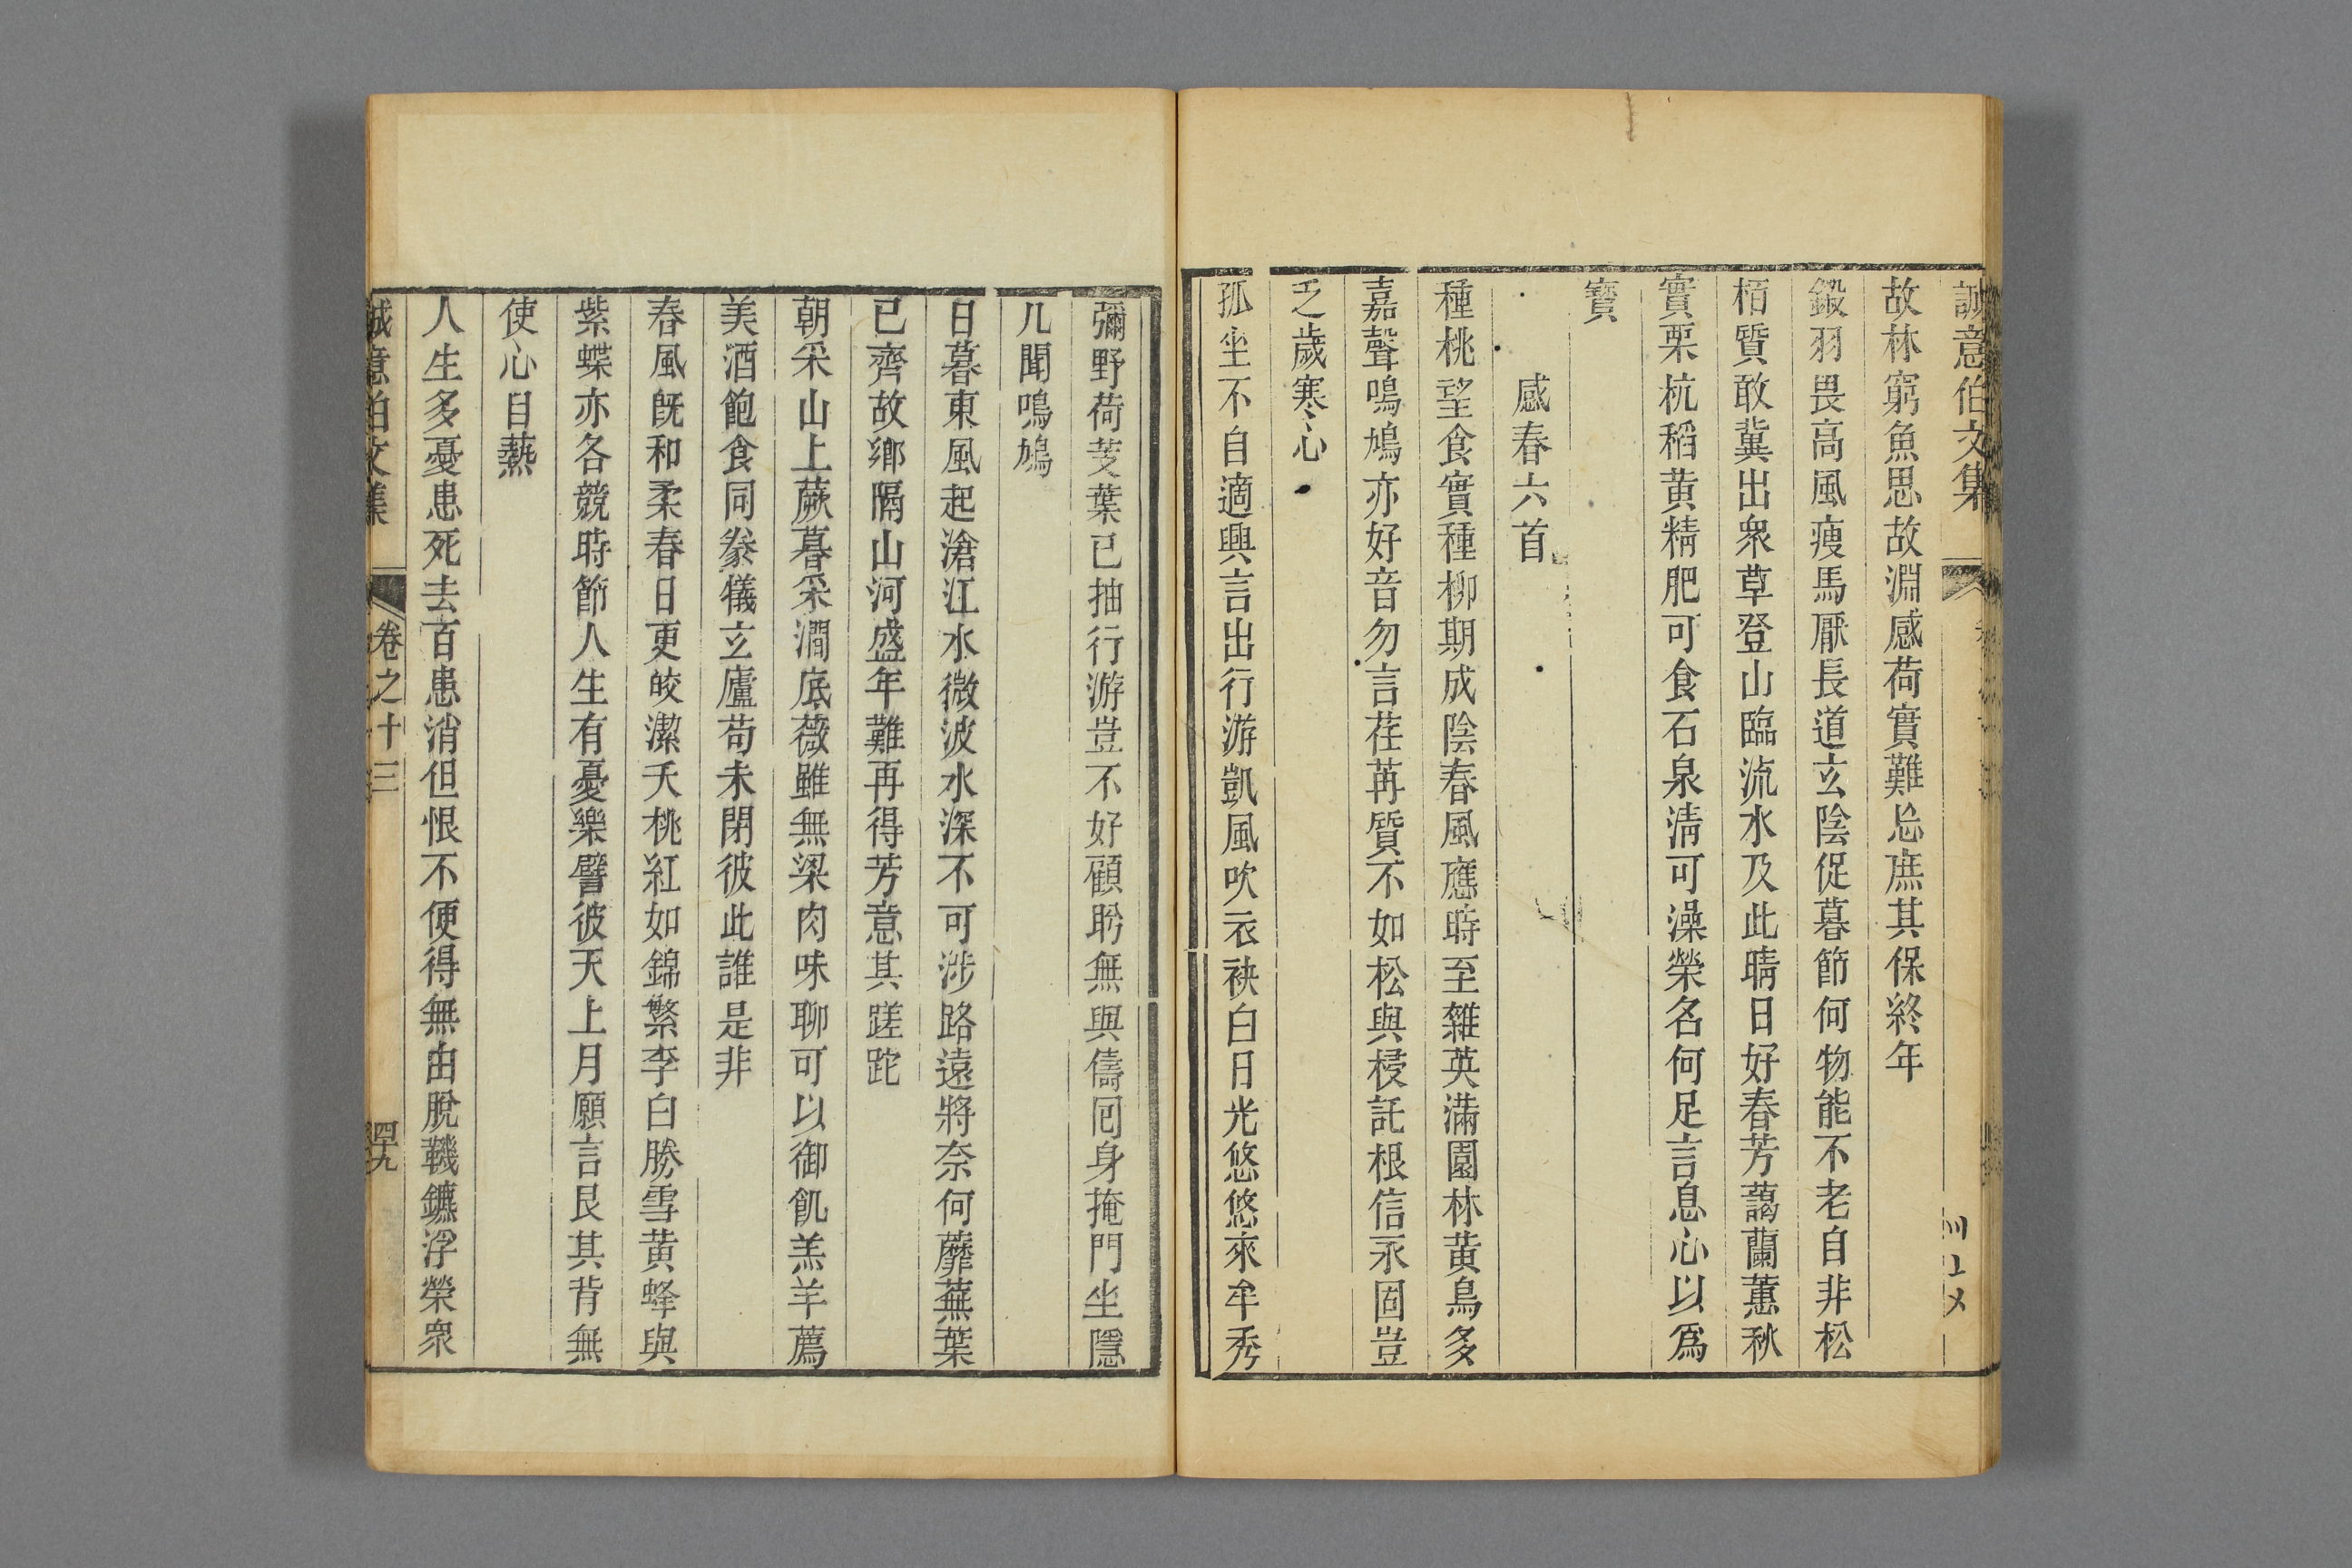 誠意伯文集
故林窮魚思故淵感荷實難忘庶其保終年
鍛羽畏高風瘦馬厭長道玄陰促暮節何物能不老自非松
栢質敢冀出衆草登山臨流水及此晴日好春芳藹蘭蕙秋
實栗杭稻黄精肥可食石泉淸可澡榮名何足言息心以爲
寳
感春六首
種桃望食實種柳期成陰春風應時至雜英滿園林黄鳥多
嘉聲鳴鳩亦好音勿言荏苒質不如松與梫託根信永固豈
乏歲寒心
孤坐不自適興言出行游凱風吹衣袂白日光悠悠來牟秀
彌野荷芰葉已抽行游豈不好顧盻無與儔囘身掩門坐隱
几聞鳴鳩
日暮東風起滄江水微波水深不可涉路遠將奈何蘼蕪葉
已齊故鄉隔山河盛年難再得芳意其蹉跎
朝采山上蕨暮采澗底薇雖無粱肉味聊可以御飢羔羊薦
美酒飽食同豢犧玄廬苟未閉彼此誰是非
春風旣和柔春日更皎潔夭桃紅如錦繁李白勝雪黄蜂與
紫蝶亦各競時節人生有憂樂譬彼天上月願言艮其背無
使心自爇
人生多憂患死去百患消但恨不便得無由脫鞿鑣浮榮衆
誠意伯文集
卷之十三
四十九